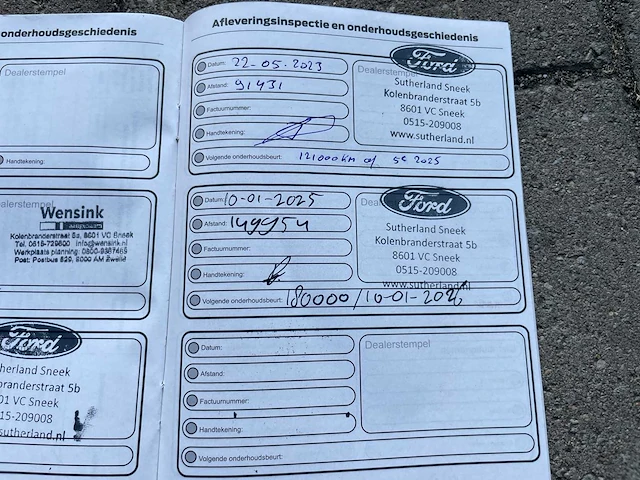 onderhoudsgeschiedenis
Dealerstempel
Handtekening:
Wensink
Kolenbranderstraat 5a, 8601 VC Sneek
Werkplaats planning: 0800-9367465
Dealerstempel
Ford
Sutherland Sneek
nbranderstraat 5b
01 VC Sneek
15-209008
sutherland.nl
Afleveringsinspectie en onderhoudsgeschiedenis
Datum: 22-05.2023
Afstand: 91431
Factuurnummer:
Handtekening:
Volgende onderhoudsbeurt: 121000km of 5e 2025
Dealerstempel
Ford
Sutherland Sneek
Kolenbranderstraat 5b
8601 VC Sneek
0515-209008
www.sutherland.nl
Datum: 10-01-2025
Afstand: 149954
Factuurnummer:
Handtekening:
Volgende onderhoudsbeurt: 180000/10-01-2026
Deale
Ford
Sutherland Sneek
Kolenbranderstraat 5b
8601 VC Sneek
0515-209008
www.sutherland.nl
Datum:
Afstand:
Factuurnummer:
Handtekening:
Volgende onderhoudsbeurt:
Dealerstempel